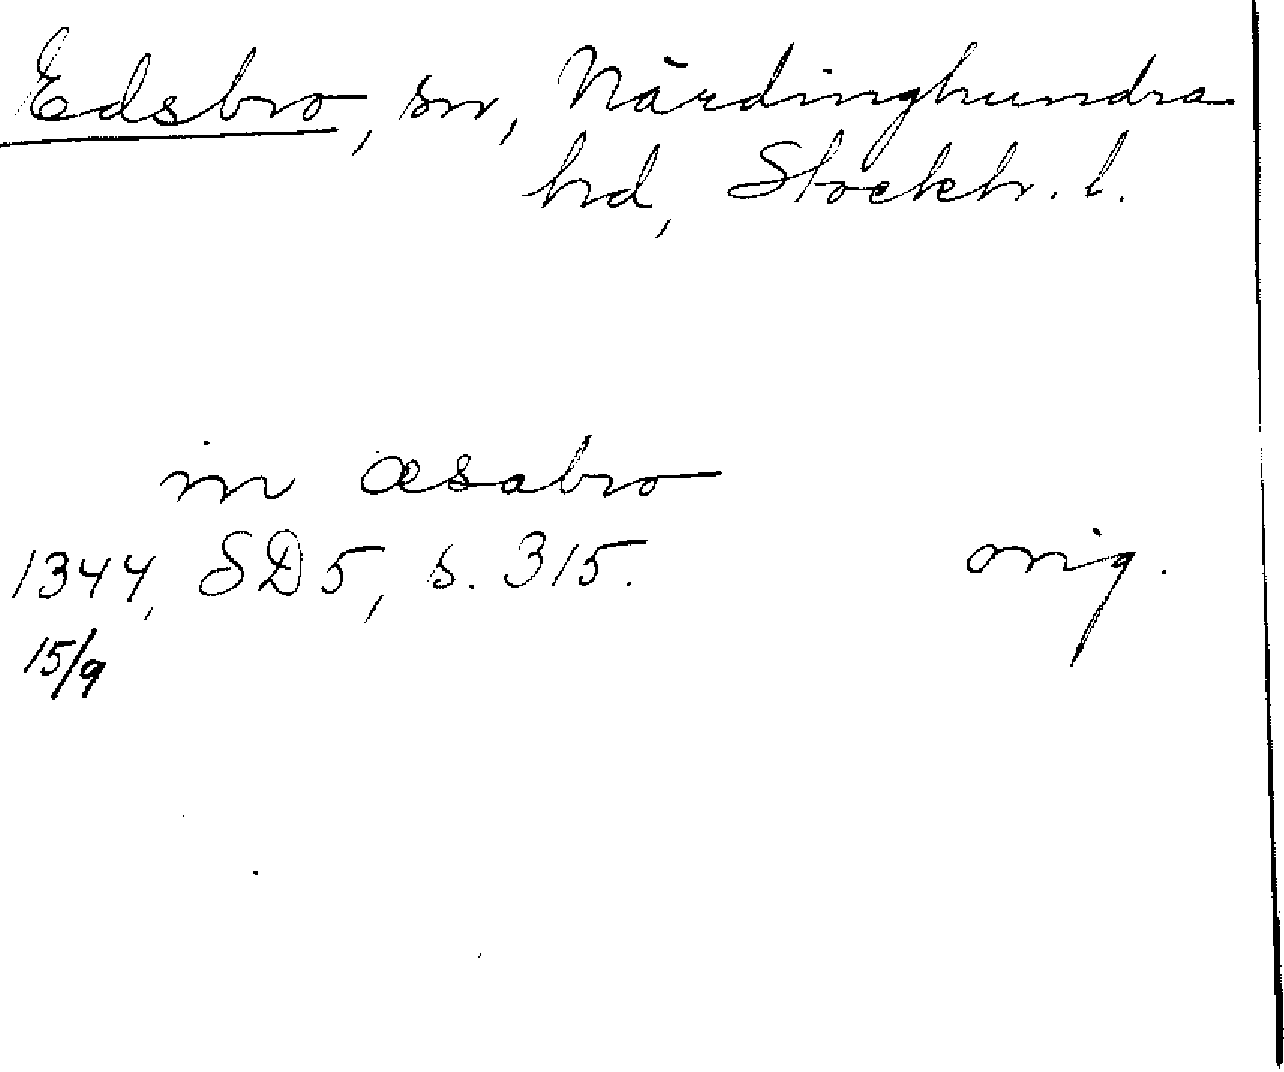 Edsbro, sn, Närdinghundra
hd, Stockh. l.
in æsabro
1344, SD 5, s. 315. orig.
15/9